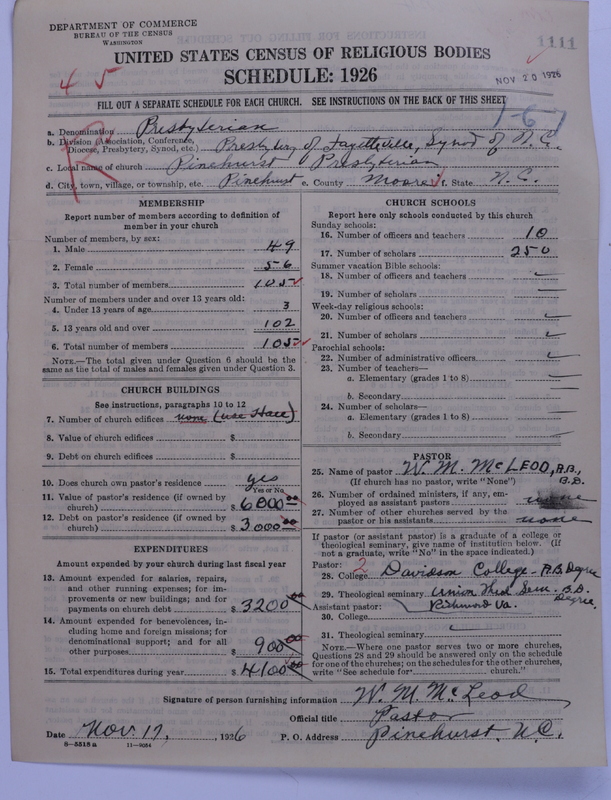 DEPARTMENT OF COMMERCE
BUREAU OF THE CENSUS
WASHINGTON
1111
UNITED STATES CENSUS OF RELIGIOUS BODIES
SCHEDULE: 1926
NOV 20 1926
4 5
FILL OUT A SEPARATE SCHEDULE FOR EACH CHURCH. SEE INSTRUCTIONS ON THE BACK OF THIS SHEET
1-6-7
R
a. Denomination Presbyterian
b. Division (Association, Conference, Diocese, Presbytery, Synod, etc.) Presbytery of Fayetteville, Synod of N. C.
c. Local name of church Pinehurst Presbyterian
d. City, town, village, or township, etc. Pinehurst e. County Moore f. State N.C.
MEMBERSHIP
Report number of members according to definition of
member in your church
Number of members, by sex:
1. Male 49
2. Female 56
3. Total number of members 105
Number of members under and over 13 years old:
4. Under 13 years of age 3
5. 13 years old and over 102
6. Total number of members 105
NOTE.—The total given under Question 6 should be the
same as the total of males and females given under Question 3.
CHURCH BUILDINGS
See instructions, paragraphs 10 to 12
7. Number of church edifices none (use Hall)
8. Value of church edifices $
9. Debt on church edifices $
10. Does church own pastor's residence yes
Yes or No
11. Value of pastor's residence (if owned by
church) $ 6000 00
12. Debt on pastor's residence (if owned by
church) $ 3000 00
EXPENDITURES
Amount expended by your church during last fiscal year
13. Amount expended for salaries, repairs,
and other running expenses; for im-
provements or new buildings; and for
payments on church debt $ 3200 00
14. Amount expended for benevolences, in-
cluding home and foreign missions; for
denominational support; and for all
other purposes $ 900 00
15. Total expenditures during year $ 4100 00
CHURCH SCHOOLS
Report here only schools conducted by this church
Sunday schools:
16. Number of officers and teachers 10
17. Number of scholars 250
Summer vacation Bible schools:
18. Number of officers and teachers
19. Number of scholars
Week-day religious schools:
20. Number of officers and teachers
21. Number of scholars
Parochial schools:
22. Number of administrative officers
23. Number of teachers—
a. Elementary (grades 1 to 8)
b. Secondary
24. Number of scholars—
a. Elementary (grades 1 to 8)
b. Secondary
PASTOR
25. Name of pastor W. M. McLEOD, A.B., B.D.
(If church has no pastor, write "None")
26. Number of ordained ministers, if any, em-
ployed as assistant pastors none
27. Number of other churches served by the
pastor or his assistants none
If pastor (or assistant pastor) is a graduate of a college or
theological seminary, give name of institution below. (If
not a graduate, write "No" in the space indicated.)
Pastor: 2
28. College Davidson College. A.B. Degree
29. Theological seminary Union Theol Sem. B.D. Degree.
Assistant pastor: Richmond Va.
30. College
31. Theological seminary
NOTE.—Where one pastor serves two or more churches,
Questions 28 and 29 should be answered only on the schedule
for one of the churches; on the schedules for the other churches,
write "See schedule for church."
Signature of person furnishing information W. M. McLeod
Official title Pastor
Date Nov. 17, , 1926 P. O. Address Pinehurst, N.C.
8-5518 a 11-9054